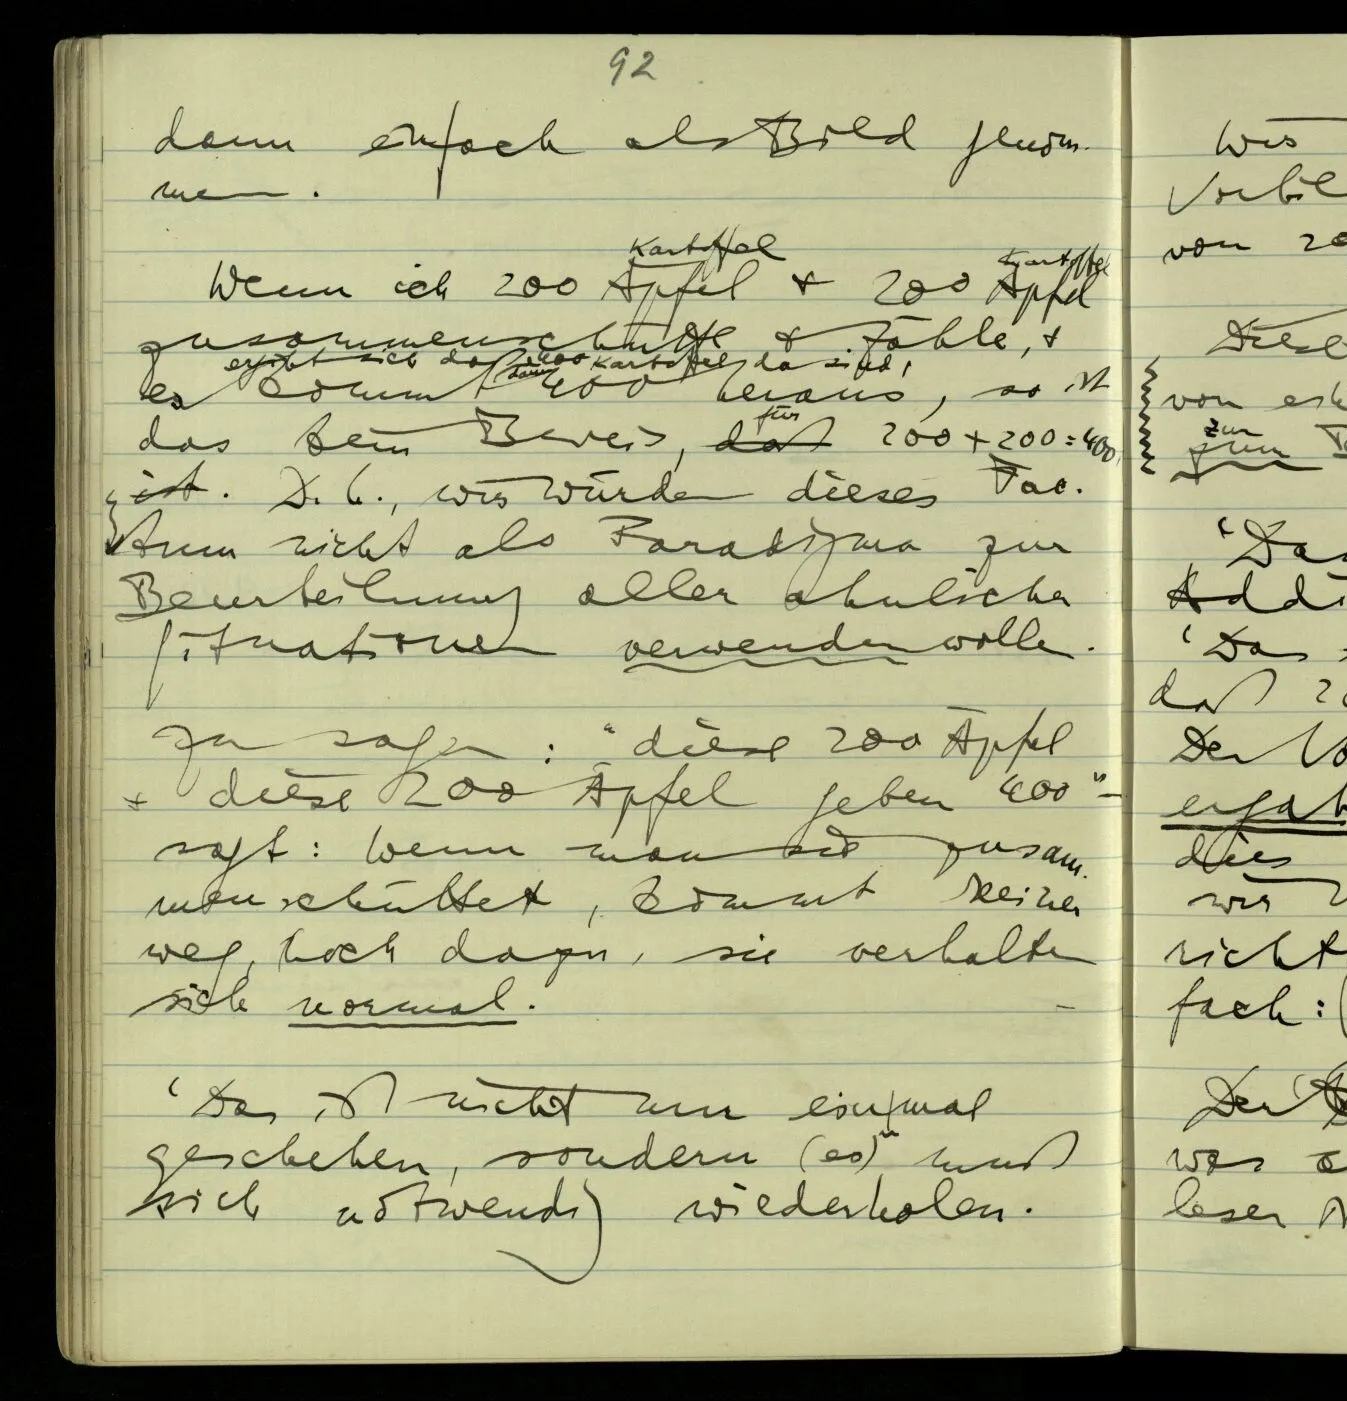 92
dann einfach als Bild genom-
men.
Kartoffel Kartoffel
Wenn ich 200 Äpfel & 200 Äpfel
zusammenschütte & zähle, &
ergibt sich daß 400 Kartoffel da sind,
es kommt 400 heraus, so ist
für
das kein Beweis, daß 200 + 200 = 400,
ist. D.h., wir würden dieses Fac-
tum nicht als Paradigma zur
Beurteilung aller ähnlichen
Situationen verwenden wollen.
Zu sagen: "diese 200 Äpfel
& diese 200 Äpfel geben 400" –
sagt: Wenn man sie zusam-
menschüttet, kommt keiner
weg, noch dazu, sie verhalten
sich normal. –
'Das ist nicht nur einmal
geschehen, sondern (es)" muß
sich notwendig wiederholen.
Wir
von 20
von
zur
zum
'Das
Addi
'Das
daß 20
Der
ergab
dies
wir
nicht
fach:
Der
was